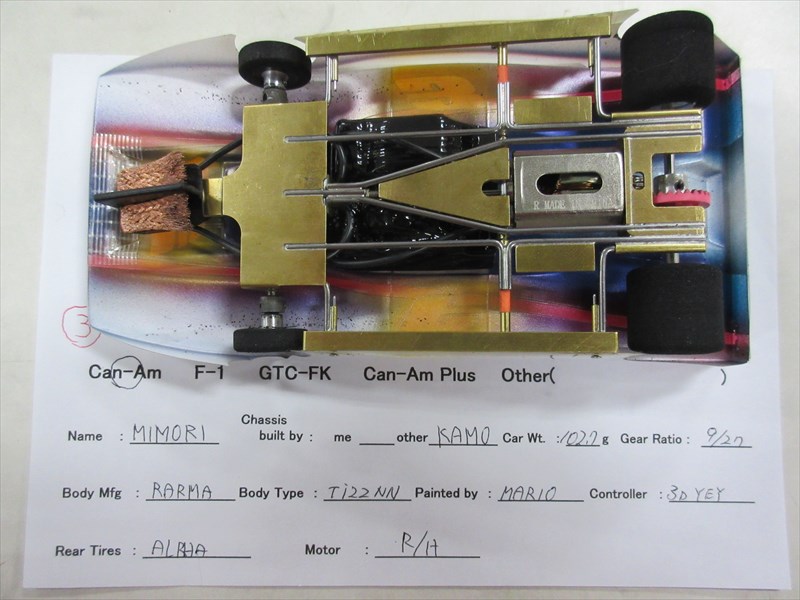 R MADE
3
Can-Am F-1 GTC-FK Can-Am Plus Other( )
Name : MIMORI Chassis built by : me ____ other KAMO Car Wt. : 102.7 g Gear Ratio : 9/27
Body Mfg : RARMA Body Type : TiZZNN Painted by : MARIO Controller : 3D YEY
Rear Tires : ALPHA Motor : R/H